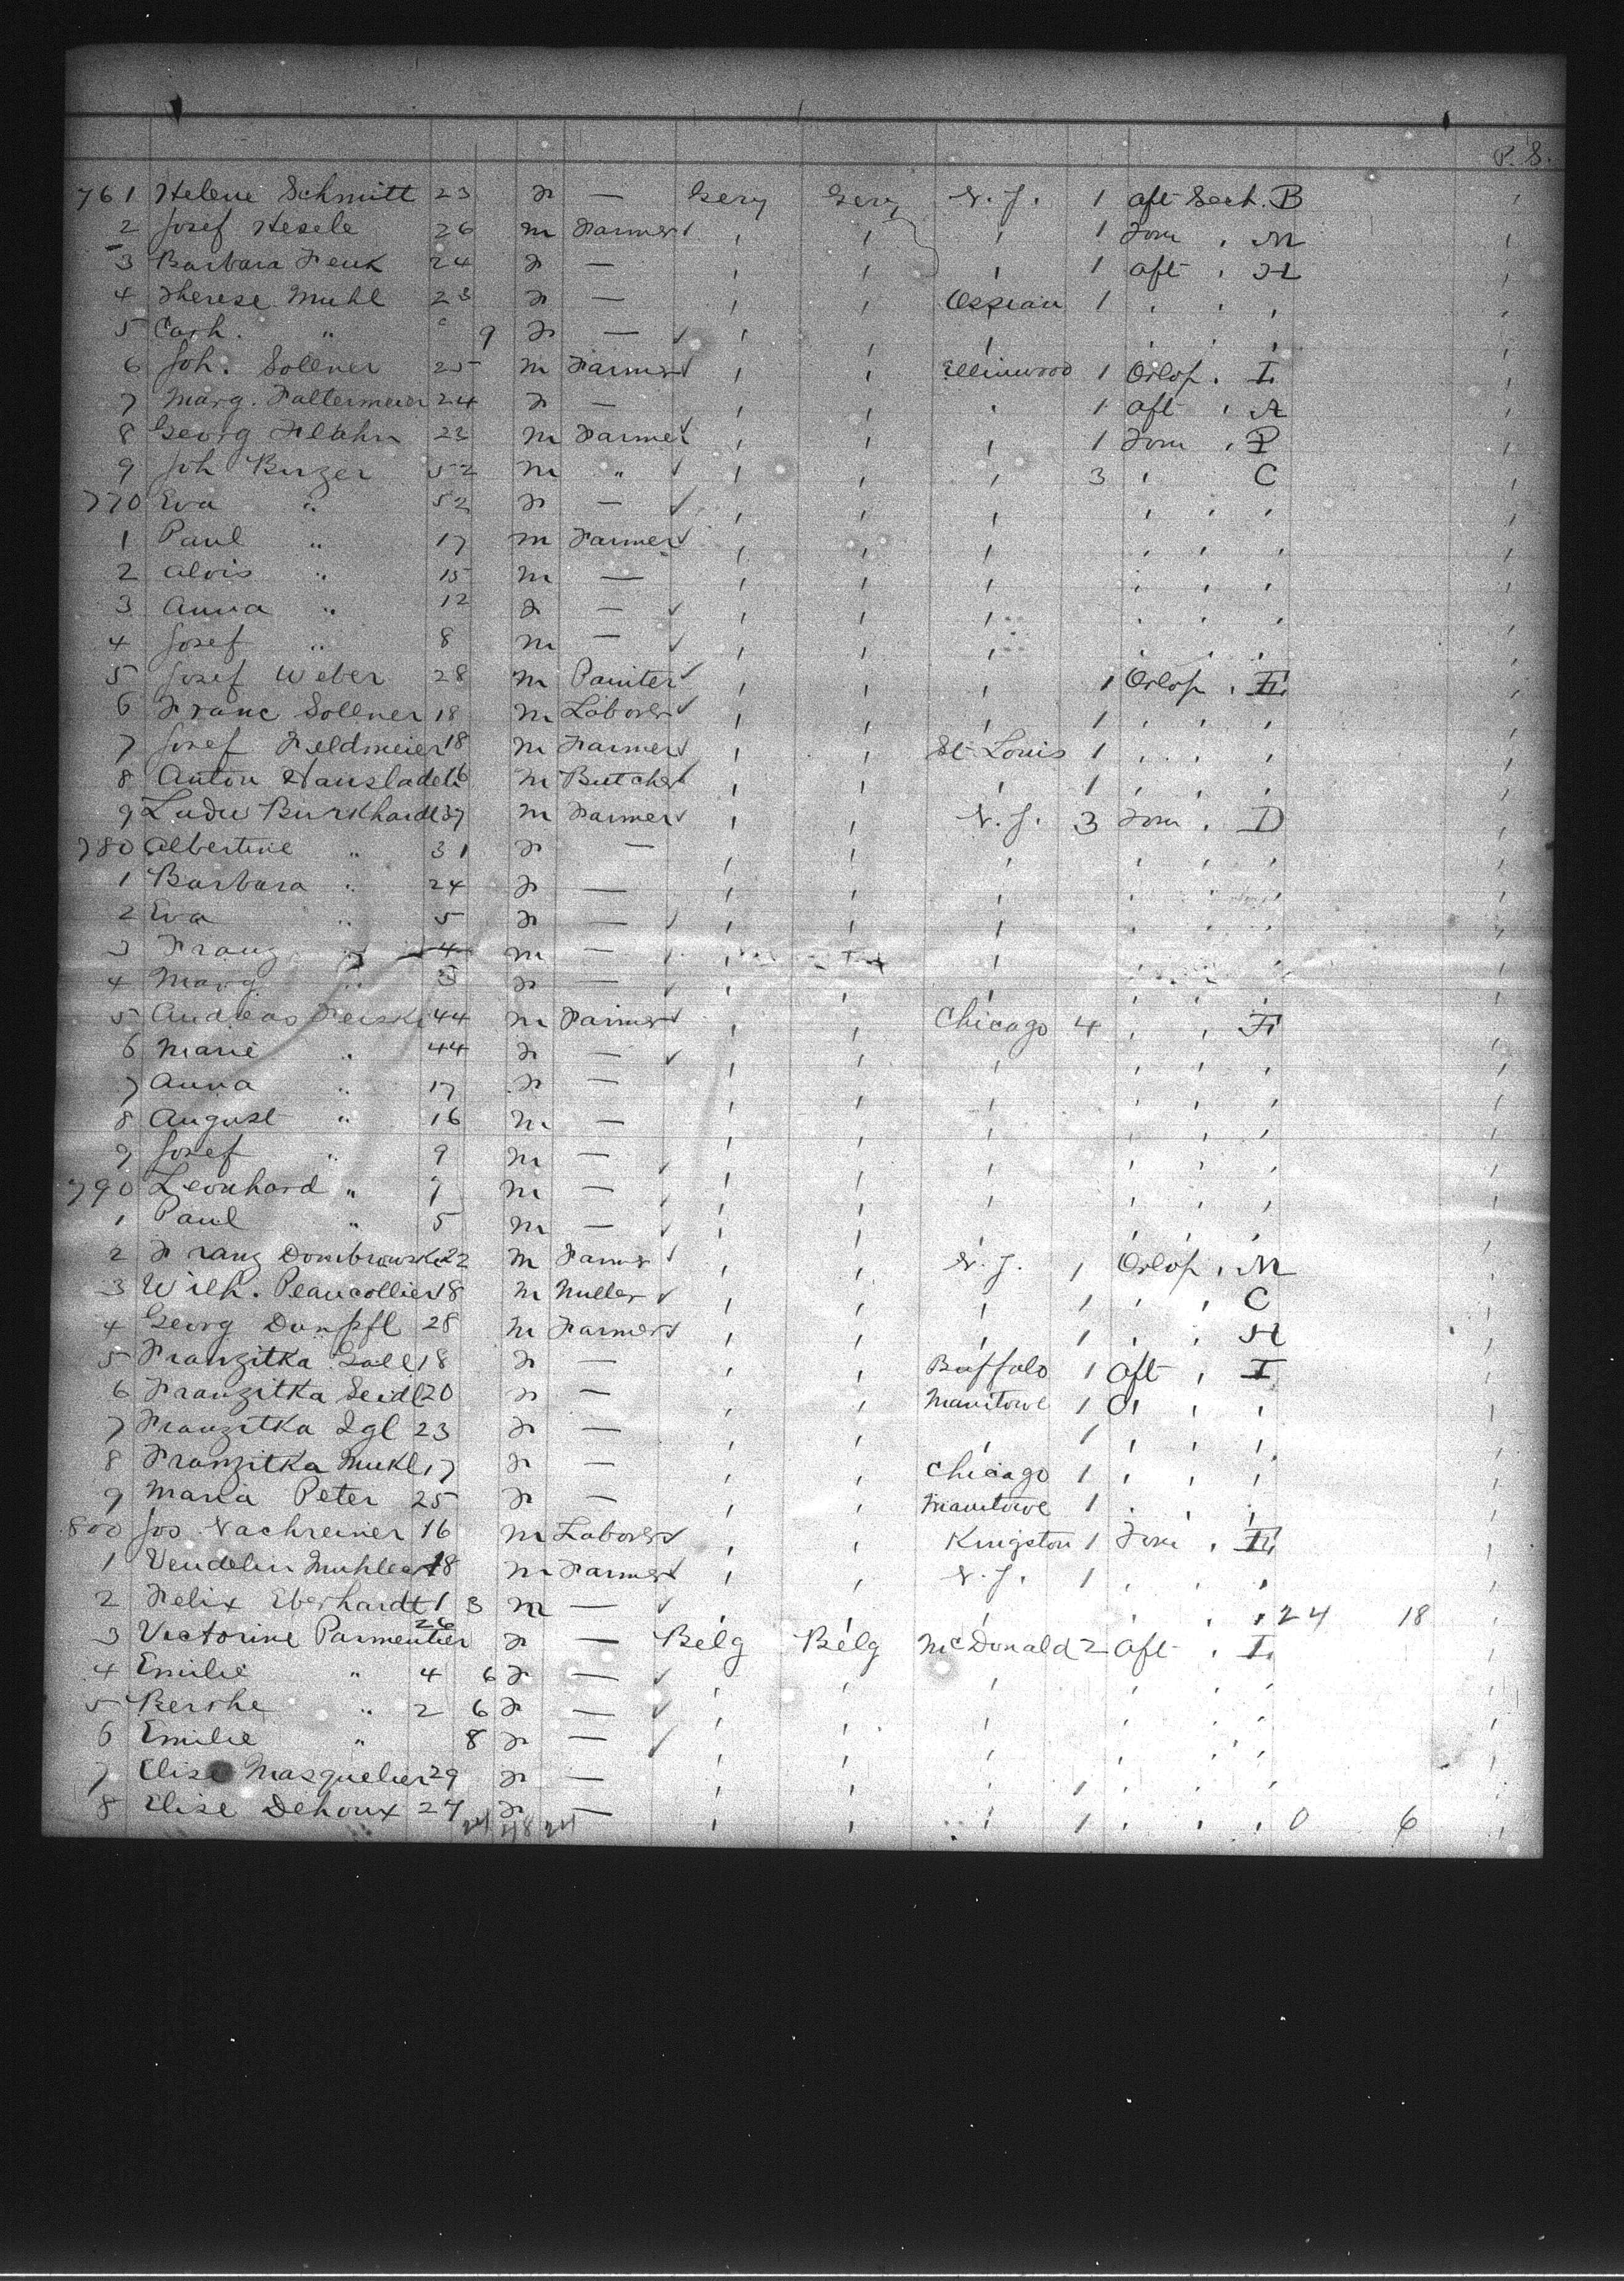 P. S.
761 Helene Schmitt 23 F — Gery Gery N.Y. 1 aft Sect. B
2 Josef Hesele 26 m Farmer ✓ ' ' ' 1 Forw . M
3 Barbara Fenk 24 F — ' ' ' 1 aft . H
4 Therese Muhl 23 F — ' ' Ossian 1 . . '
5 Cath. " 9 F — ✓ ' ' ' . . '
6 Joh. Sollner 25 m Farmer ✓ ' ' Ellinwood 1 Orlop . I
7 Marg. Faltermeier 24 F — ' ' ' 1 aft .
8 Georg 23 m Farmer ✓ ' ' ' 1 Forw .
9 Joh Burger 52 m " ✓ ' ' ' 3 ' C
770 Eva " 52 F — ✓ ' ' ' ' ' '
1 Paul " 17 m Farmer ✓ ' ' ' ' ' '
2 Alois " 15 m — ' ' ' ' ' '
3 Anna " 12 F — ✓ ' ' ' ' ' '
4 Josef " 8 m — ✓ ' ' ' ' ' '
5 Josef Weber 28 m Painter ✓ ' ' ' 1 Orlop .
6 Franc Sollner 18 m Laborer ✓ ' ' ' 1 ' ' '
7 Josef Feldmeier 18 m Farmer ✓ ' ' St. Louis 1 ' ' '
8 Anton 16 m Butcher ✓ ' ' ' 1 ' ' '
9 Burkhardt 37 m Farmer ✓ ' ' N.Y. 3 Forw . D
780 Albertine " 31 F — ' ' ' ' ' '
1 Barbara " 24 F — ' ' ' ' ' '
2 Eva " 5 F — ✓ ' ' ' ' ' '
3 Franz " 4 m — ✓ ' ' ' ' '
4 Marg " 3 F — ✓ ' ' ' ' ' '
5 Andreas 44 m Farmer ✓ ' ' Chicago 4 ' ' F
6 Marie " 44 F — ✓ ' ' ' ' ' '
7 Anna " 17 F — ' ' ' ' ' '
8 August " 16 m — ' ' ' ' ' '
9 Josef " 9 m — ✓ ' ' ' ' ' '
790 Leonhard " 7 m — ✓ ' ' ' ' ' '
1 Paul " 5 m — ✓ ' ' ' ' ' '
2 Franz Dombrowski 22 m Farmer ✓ ' ' N.Y. 1 Orlop . M
3 Wilh. Peaucollier 18 m Muller ✓ ' ' ' 1 ' ' C
4 Georg Dumpfl 28 m Farmer ✓ ' ' ' 1 ' ' H
5 Franzitka Gall 18 F — ' ' Buffalo 1 Aft ' I
6 Franzitka Seidl 20 F — ' ' Manitowe 1 ' ' '
7 Franzitka Igl 23 F — ' ' ' 1 ' ' '
8 Franzitka Mukl 17 F — ' ' Chicago 1 ' ' '
9 Maria Peter 25 F — ' ' Manitowe 1 ' ' '
800 Jos Nachreiner 16 m Laborer ✓ ' ' Kingston 1 Forw .
1 Vendelin 18 m Farmer ✓ ' ' N.Y. 1 ' ' '
2 Felix Eberhardt 1 3 m — ✓ ' ' ' ' ' 24 18
3 Victorine Parmentier 26 F — Belg Belg McDonald 2 Aft . I
4 Emilie " 4 6 F — ✓ ' ' ' ' ' '
5 Berthe " 2 6 F — ✓ ' ' ' ' ' '
6 Emilie " 8 F — ✓ ' ' ' ' ' '
7 Elise Masquelier 29 F — ' ' ' 1 ' ' '
8 Elise Dehoux 27 F — ' ' ' 1 ' ' ' 0 6
24 48 24